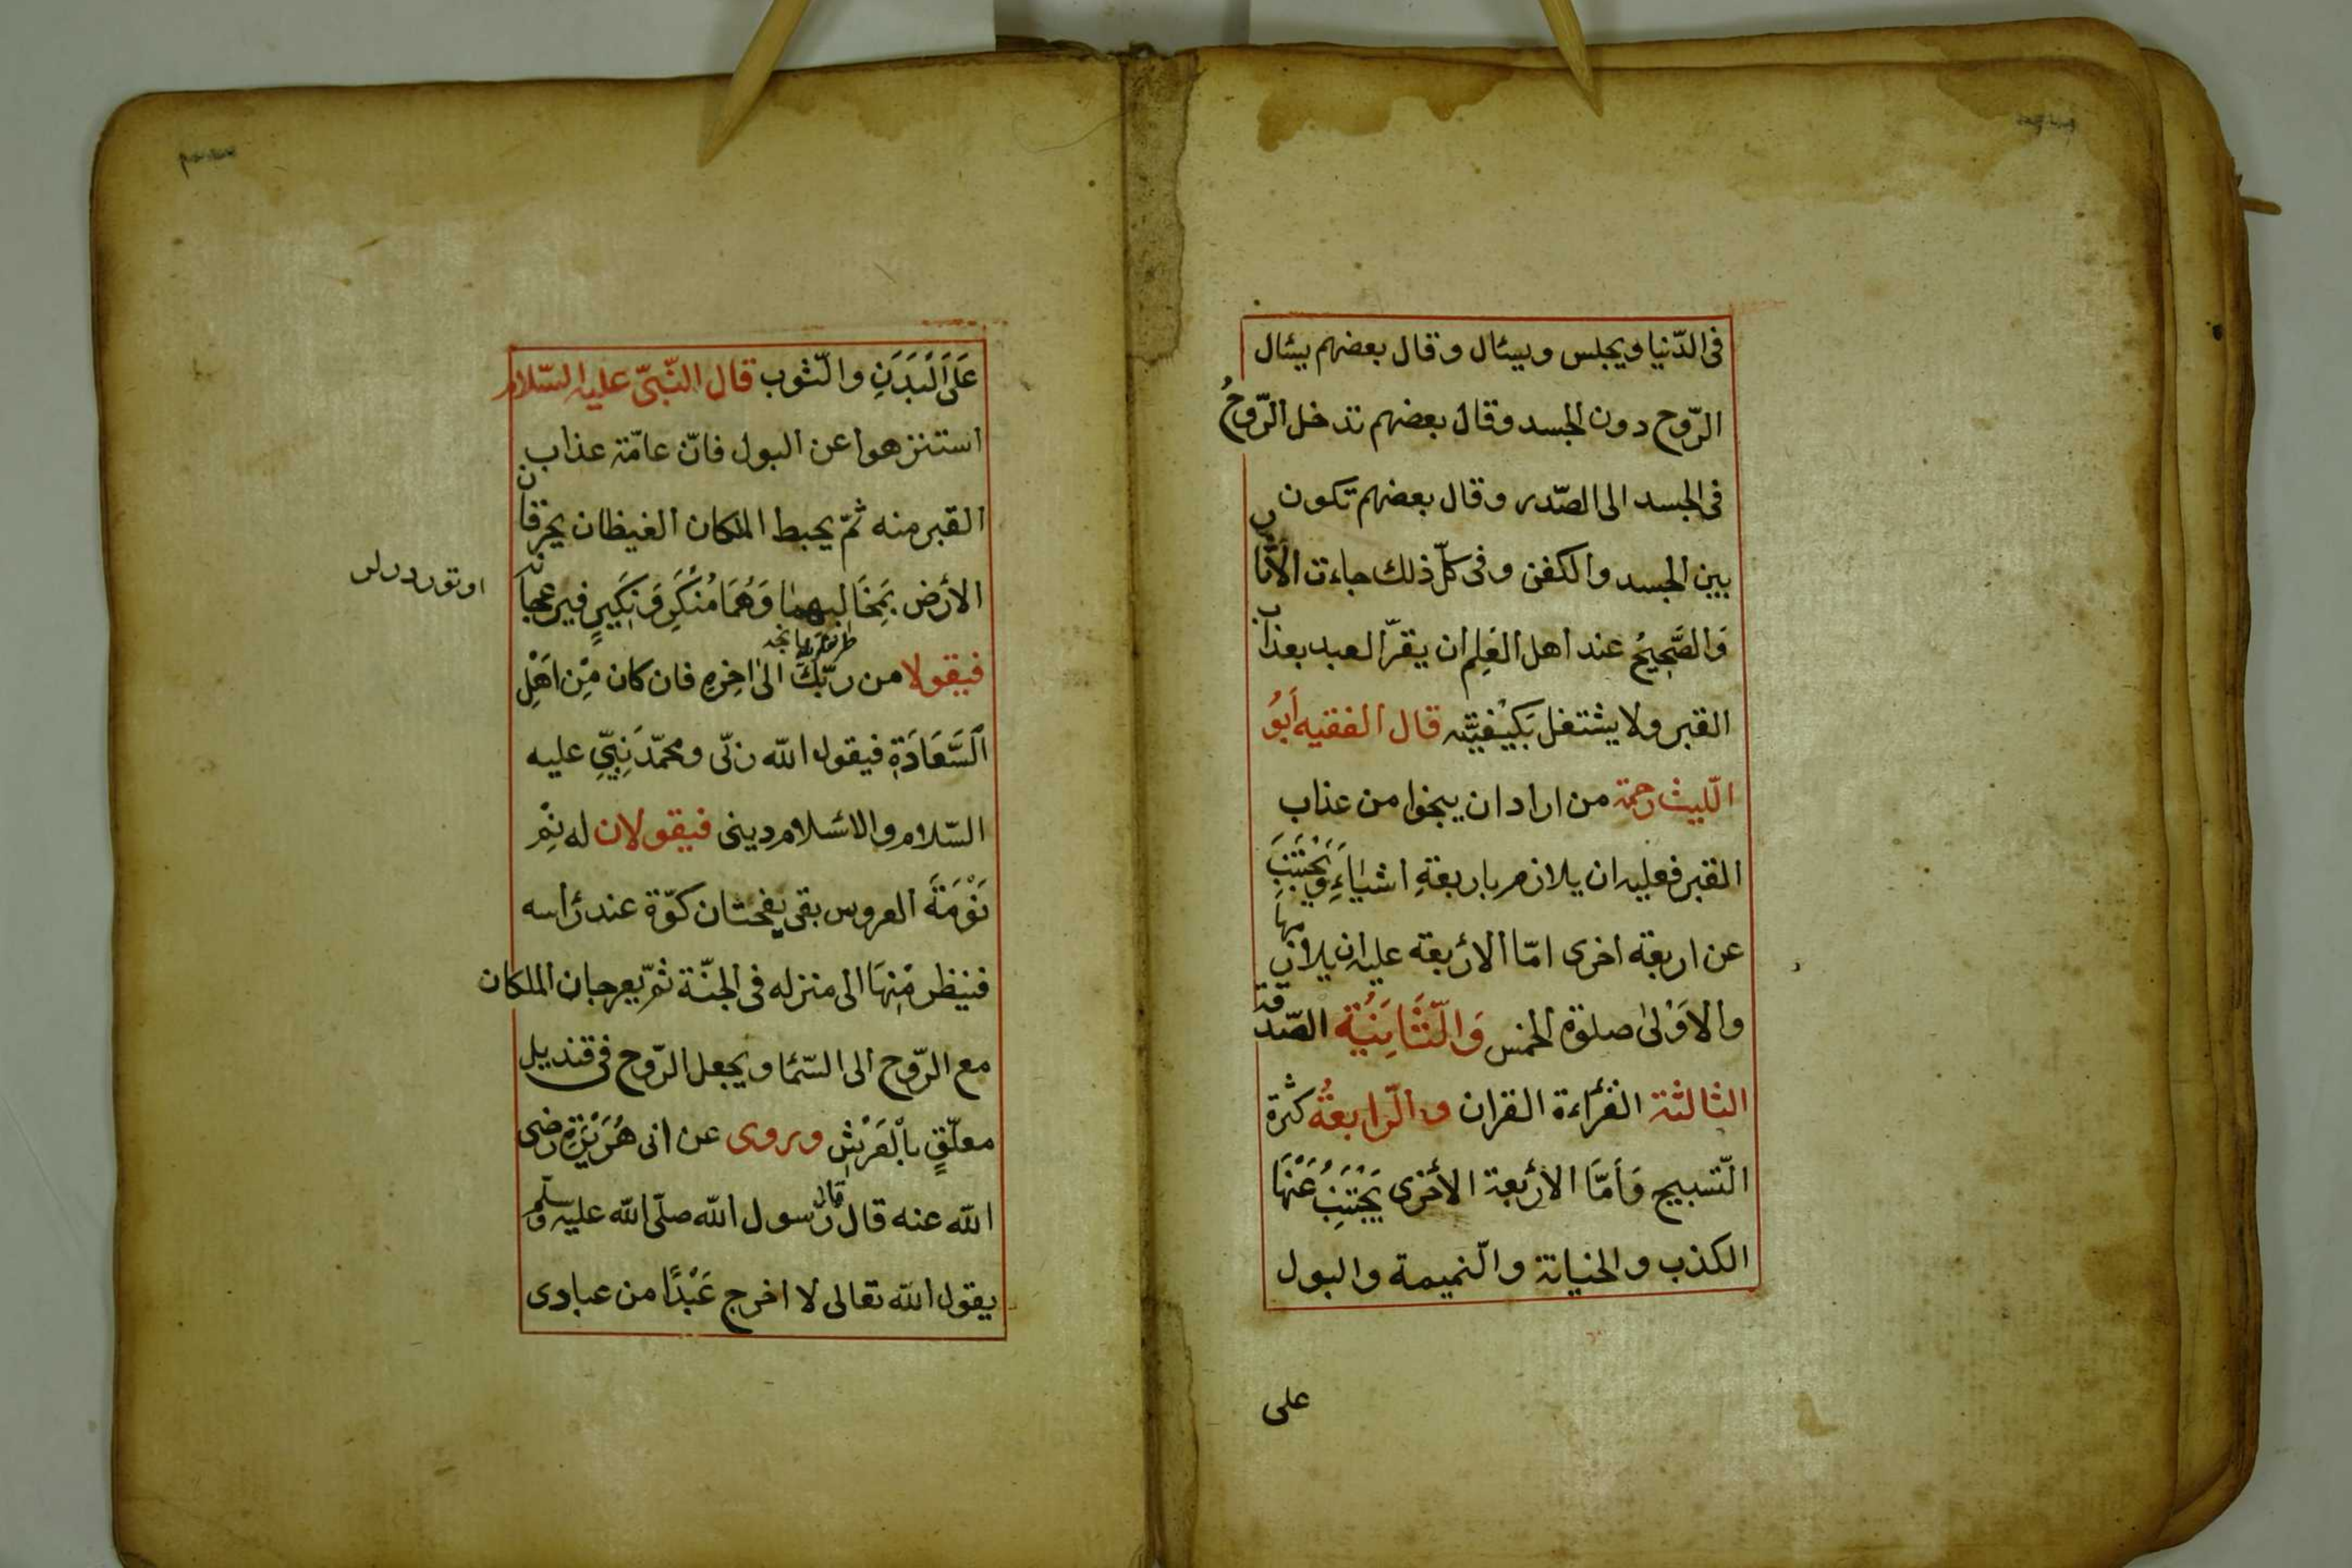 فى الدّنيا ويجلس ويسئال وقال بعضهم يسئال
الرّوح دون الجسد وقال بعضهم تدخل الرّوحُ
فى الجسد الى الصّدر وقال بعضهم تكون
بين الجسد والكفن وفى كلّ ذلك جاءت الآثار
وَالصَّحِيحُ عند اهل العَلِم ان يقرّ العبد بعذاب
القبر ولا يشتغل بَكَيْفيَّته قال الفقيه أَبُو
اللّيث رحمة من اراد ان ينجوا من عذاب
القبر فعليه ان يلازم باربعةِ اشياءَ وَيَجْتَنِبَ
عن اربعة اخرى امّا الاربعة عليه ان يلازمها
والاَوْلىٰ صلوة الخمس وَالثَّانِيَةُ الصّدقة
الثالثة القراءة القران والرّابعةُ كثرة
التّسبيح وَأَمَّا الأربعة الأخرى يَجْتَنِبُ عَنْهَا
الكذب والخيانة والنّميمة والبول
على
عَلَى اَلْبَدَنِ والثّوب قال النّبىّ عليه السّلام
استنزهوا عن البول فانّ عامّة عذاب
القبر منه ثمّ يحبط الملكان الغيظان يخرقان
الأرض بَمِخَالِبهما وَهُمَا مُنْكَرِ وَنَكَيرٍ فيرعجانه
اوتوردرلر
فيقولا من ربّكَ الىٰ اخِرِهِ فان كان مْنِ اَهْلِ
اَلسَّعَادَةِ فيقول اللّه ربّى ومحمّد نَبِيِّ عليه
السّلام والاسلام دينى فيقولان له نِمْ
نَوْمَةَ العروس بقى يفحتان كوّة عند رأسه
فينظر مْنِهَا الى منزله فى الجنّة ثمّ يعرجان الملكان
مع الرّوح الى السّمأ ويجعل الرّوح فى قنديل
معلّقٍ بِاْلعَرْشِ وروى عن ابى هُرَيْرَةِ رضى
اللّه عنه قال قال رسول اللّه صلّى اللّه عليه وسلّم
يقول اللّه تعالى لا اخرج عَبْدًا من عبادى